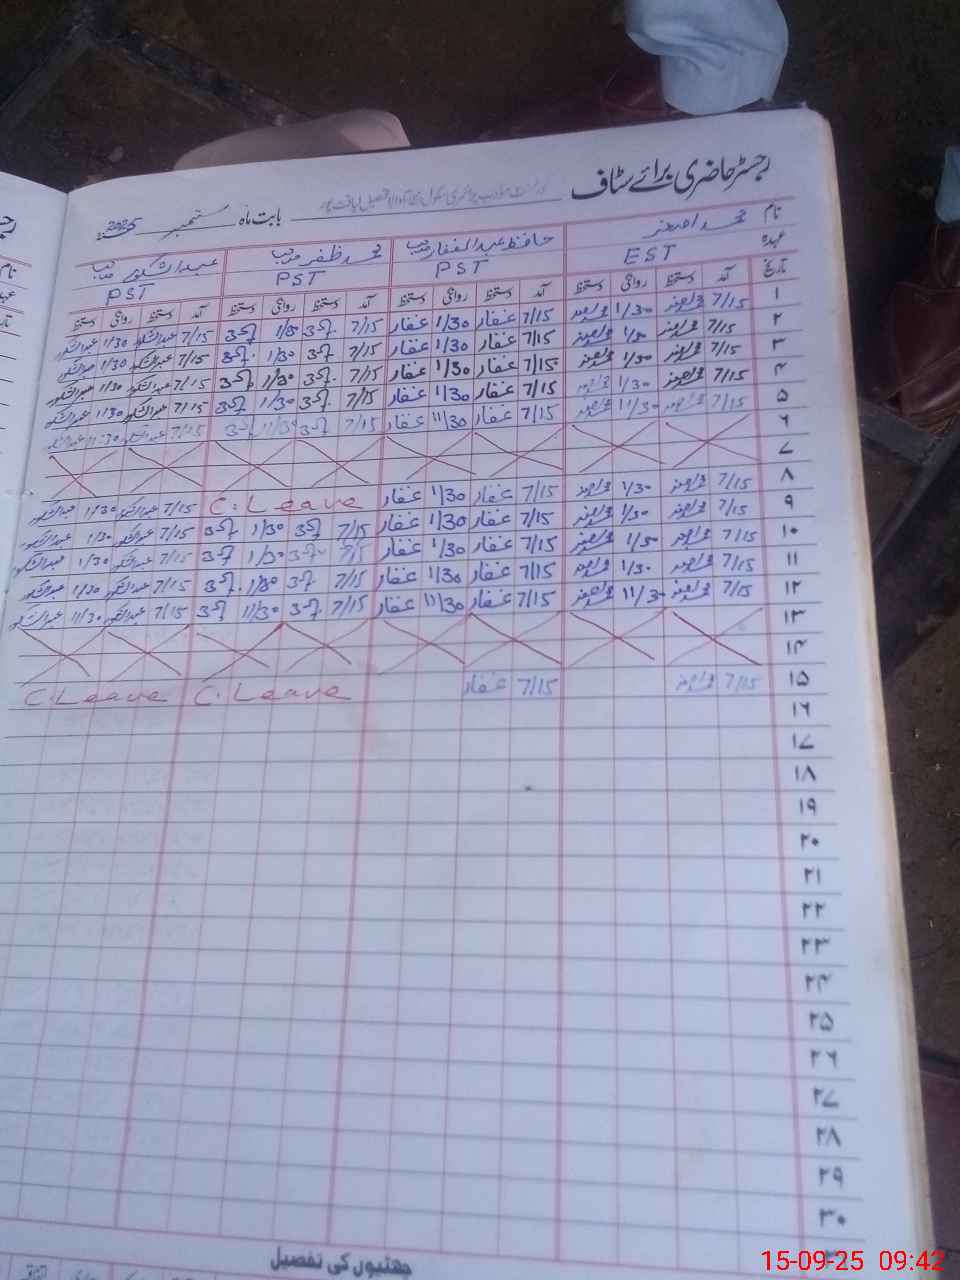 رجسٹر حاضری برائے سٹاف
بابت ماہ ستمبر 2025
نام محمد اصغر حافظ عبدالغفار صاحب محمد ظفر صاحب عبدالشکور صاحب
عہدہ EST PST PST PST
تاریخ آمد دستخط روانگی دستخط آمد دستخط روانگی دستخط آمد دستخط روانگی دستخط آمد دستخط روانگی دستخط
۱ 7/15 محمد اصغر 1/30 محمد اصغر 7/15 غفار 1/30 غفار 7/15 1/30 7/15 عبدالشکور 1/30 عبدالشکور
۲ 7/15 محمد اصغر 1/30 محمد اصغر 7/15 غفار 1/30 غفار 7/15 1/30 7/15 عبدالشکور 1/30 عبدالشکور
۳ 7/15 محمد اصغر 1/30 محمد اصغر 7/15 غفار 1/30 غفار 7/15 1/30 7/15 عبدالشکور 1/30 عبدالشکور
۴ 7/15 محمد اصغر 1/30 محمد اصغر 7/15 غفار 1/30 غفار 7/15 1/30 7/15 عبدالشکور 1/30 عبدالشکور
۵ 7/15 محمد اصغر 11/30 محمد اصغر 7/15 غفار 11/30 غفار 7/15 11/30 7/15 عبدالشکور 11/30 عبدالشکور
۶
۷
۸ 7/15 محمد اصغر 1/30 محمد اصغر 7/15 غفار 1/30 غفار C. Leave 7/15 عبدالشکور 1/30 عبدالشکور
۹ 7/15 محمد اصغر 1/30 محمد اصغر 7/15 غفار 1/30 غفار 7/15 1/30 7/15 عبدالشکور 1/30 عبدالشکور
۱۰ 7/15 محمد اصغر 1/30 محمد اصغر 7/15 غفار 1/30 غفار 7/15 1/30 7/15 عبدالشکور 1/30 عبدالشکور
۱۱ 7/15 محمد اصغر 1/30 محمد اصغر 7/15 غفار 1/30 غفار 7/15 1/30 7/15 عبدالشکور 1/30 عبدالشکور
۱۲ 7/15 محمد اصغر 11/30 محمد اصغر 7/15 غفار 11/30 غفار 7/15 11/30 7/15 عبدالشکور 11/30 عبدالشکور
۱۳
۱۴
۱۵ 7/15 محمد اصغر 7/15 غفار C. Leave C. Leave
۱۶
۱۷
۱۸
۱۹
۲۰
۲۱
۲۲
۲۳
۲۴
۲۵
۲۶
۲۷
۲۸
۲۹
۳۰
چھٹیوں کی تفصیل
15-09-25 09:42